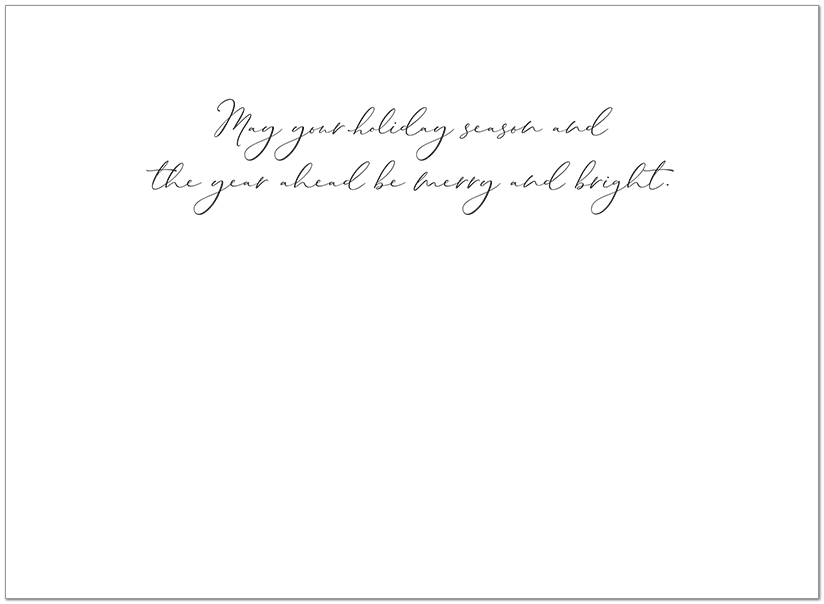 May your holiday season and
the year ahead be merry and bright.